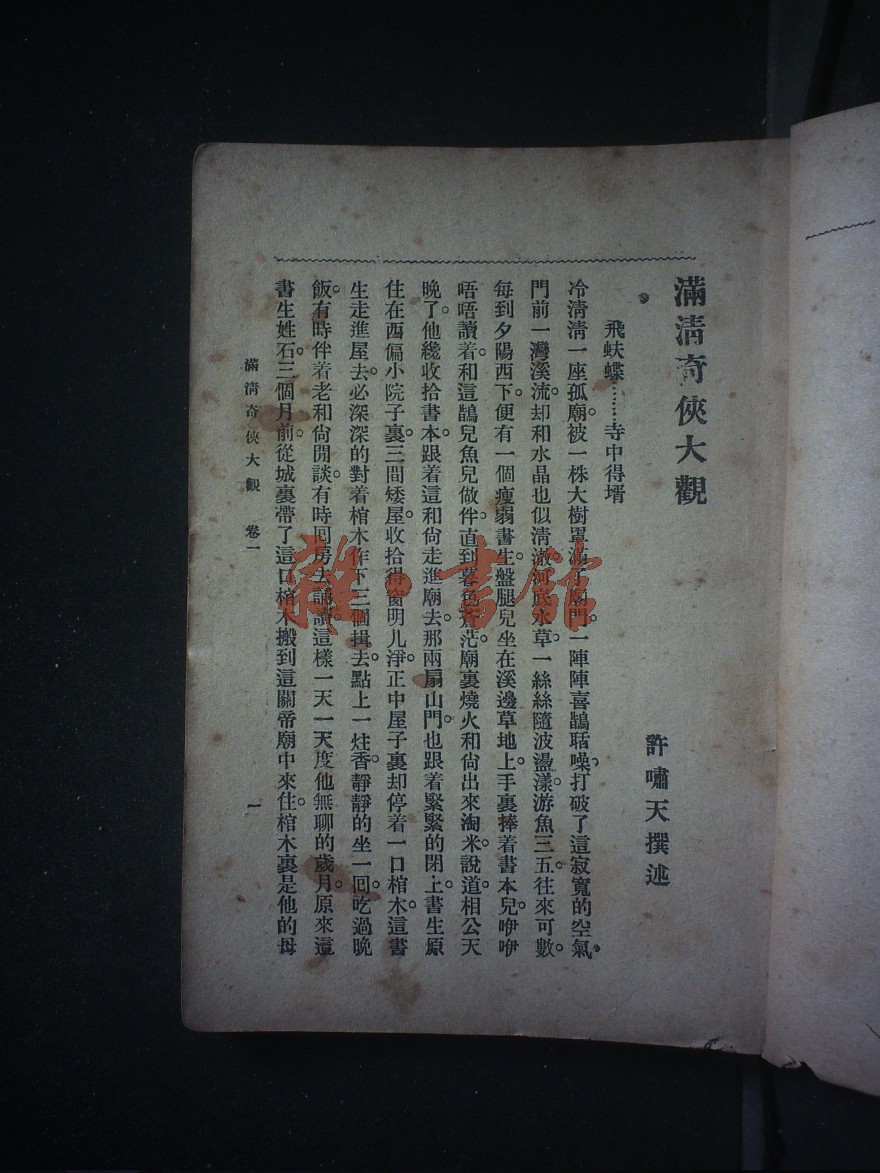 滿清奇俠大觀
許嘯天撰述
飛蚨蝶……寺中得壻
冷清清一座孤廟。被一株大樹罩滿了廟門。一陣陣喜鵲聒噪、打破了這寂寞的空氣。
門前一灣溪流。却和水晶也似清澈。河底水草。一絲絲隨波盪漾。游魚三五。往來可數。
每到夕陽西下。便有一個瘦弱書生。盤腿兒坐在溪邊草地上。手裏捧着書本兒。咿咿
唔唔讀着。和這鵲兒魚兒做伴。直到暮色蒼茫。廟裏燒火和尙出來淘米。說道。相公天
晚了。他纔收拾書本。跟着這和尙走進廟去。那兩扇山門。也跟着緊緊的閉上。書生原
住在西偏小院子裏。三間矮屋。收拾得窗明几淨。正中屋子裏却停着一口棺木。這書
生走進屋去。必深深的對着棺木作下三個揖去。點上一炷香。靜靜的坐一回。吃過晚
飯。有時伴着老和尙閒談。有時回房去誦讀。這樣一天一天度他無聊的歲月。原來這
書生姓石。三個月前。從城裏帶了這口棺木搬到這關帝廟中來住。棺木裏是他的母
滿清奇俠大觀 卷一
一
雜·書館